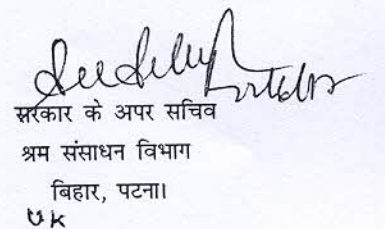 सरकार के अपर सचिव
श्रम संसाधन विभाग
बिहार, पटना।
UK